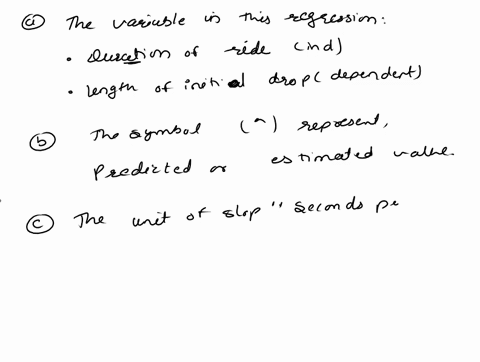 (a) The variable in this regression:
• Duration of ride (ind)
• Length of initial drop (dependent)
(b) The symbol (^) represent,
Predicted or estimated value.
(c) The unit of slop " seconds pe